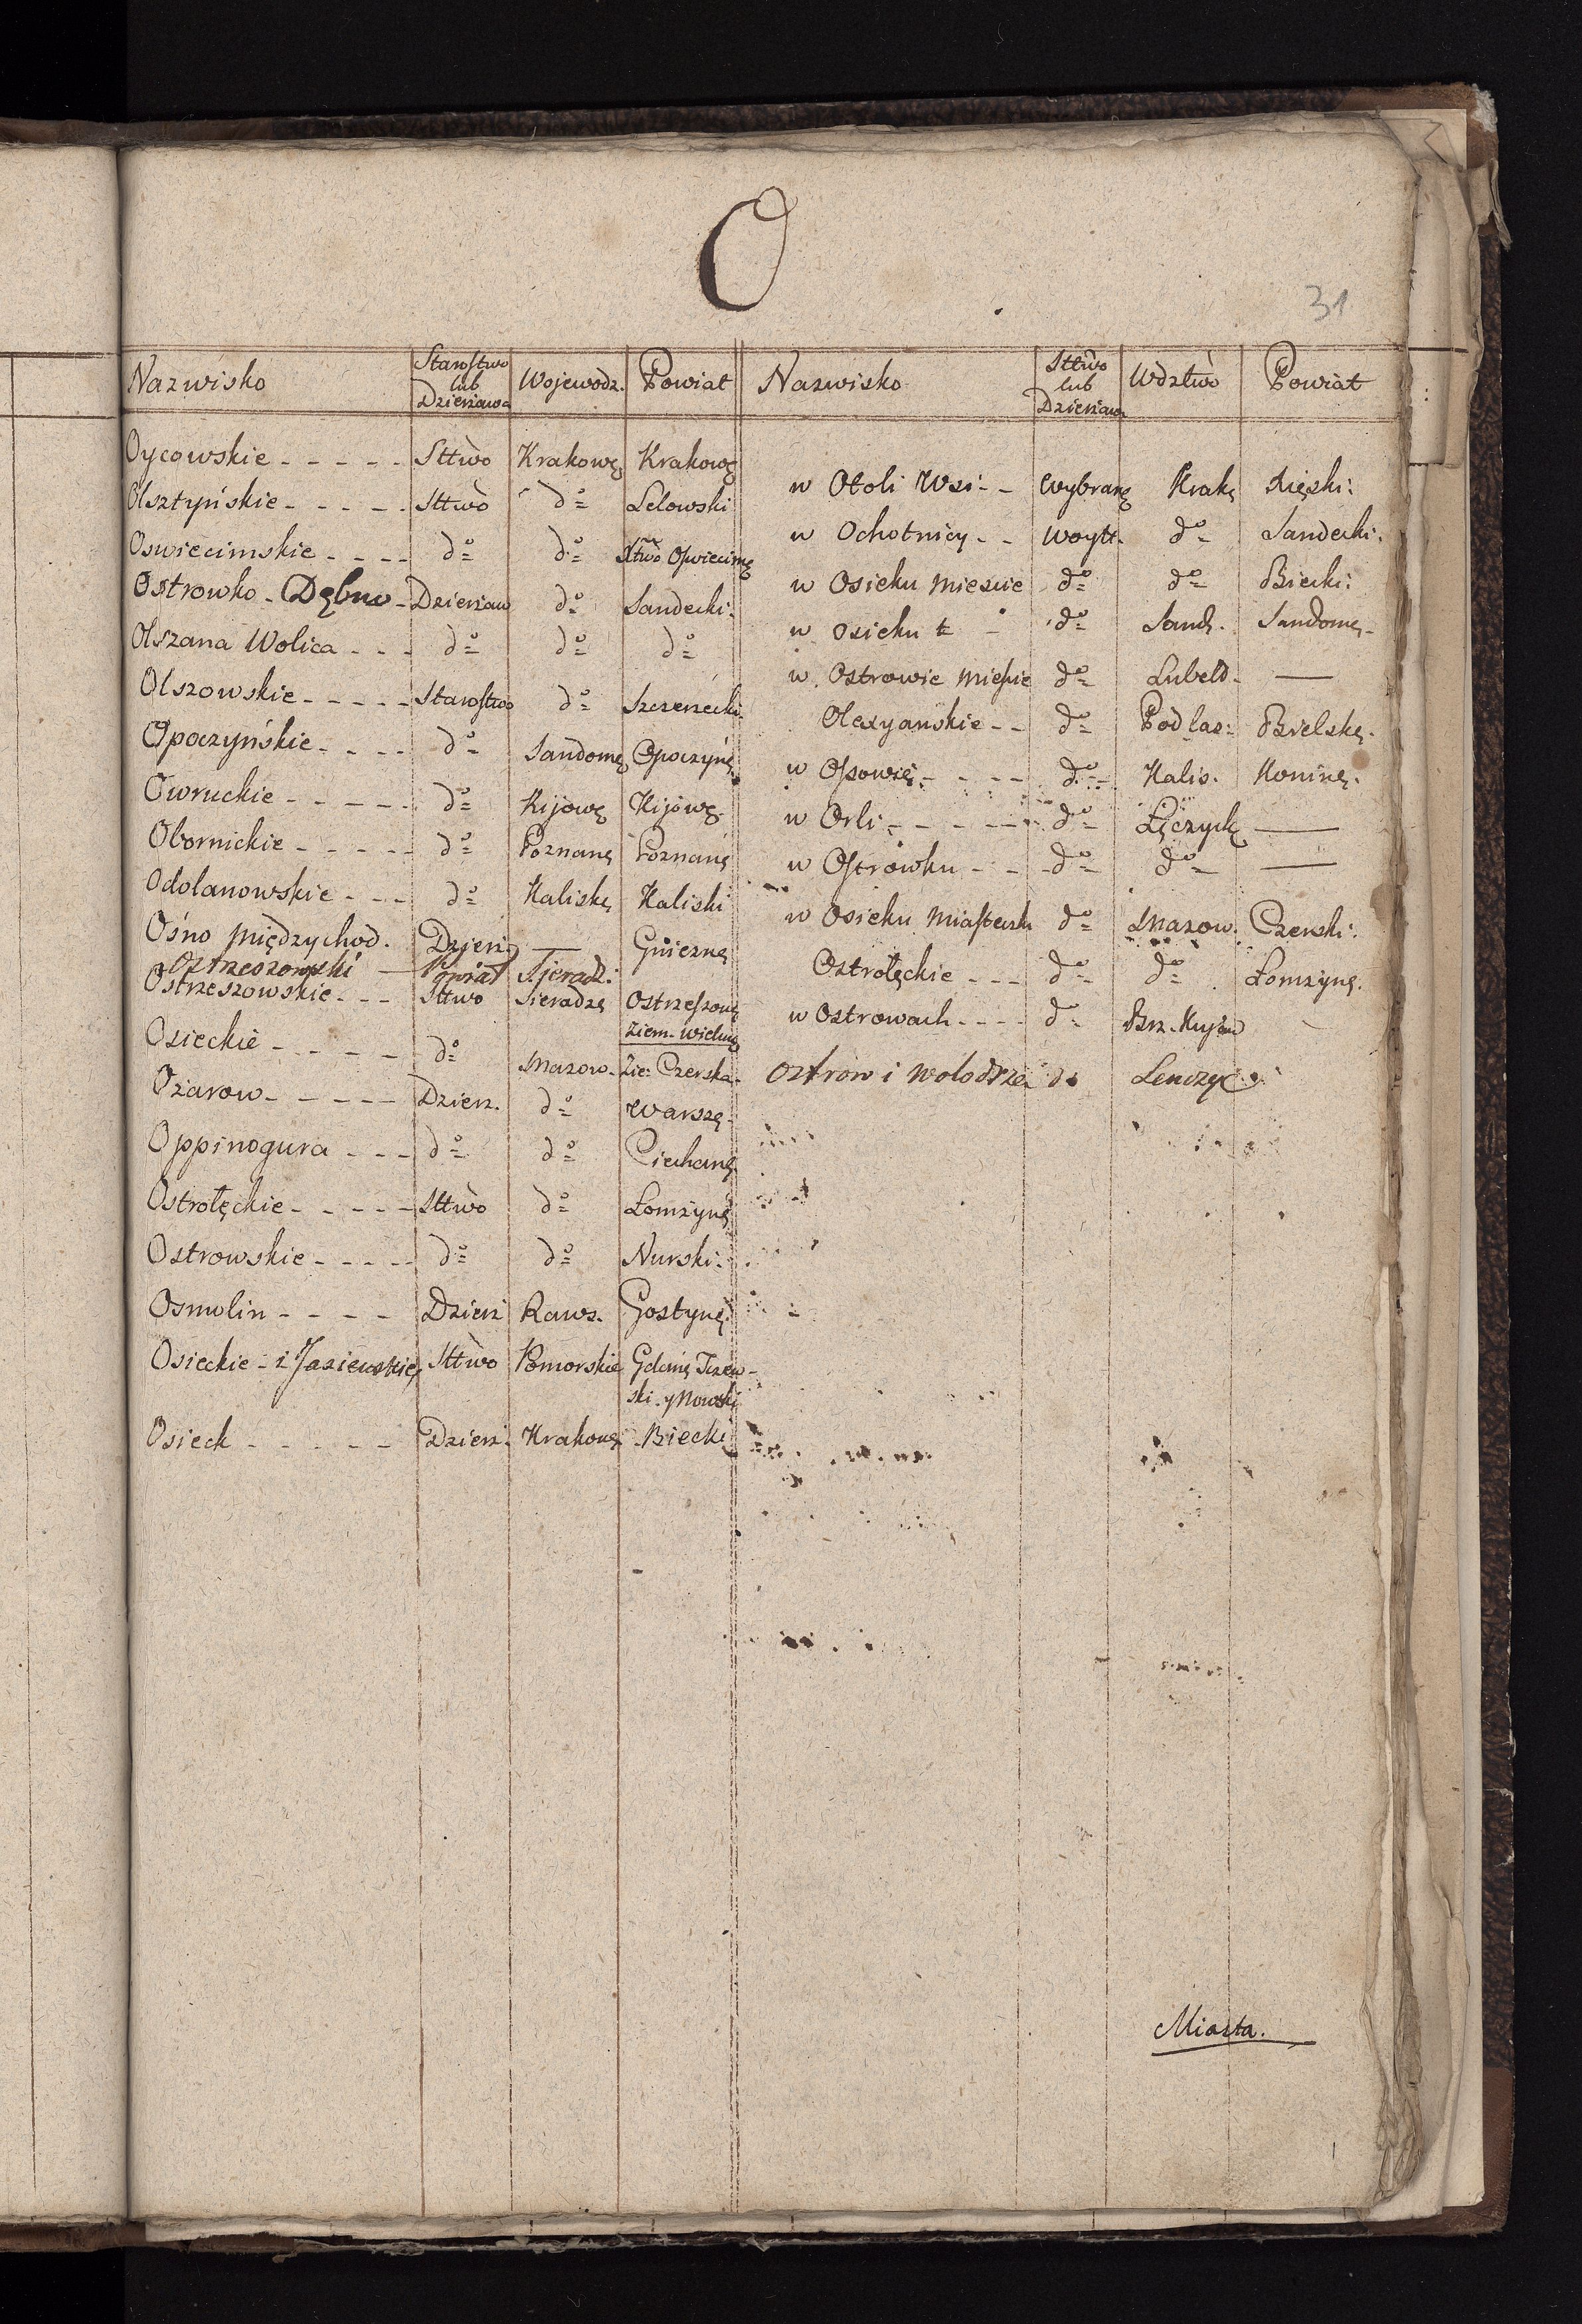 O
31
Nazwisko Starostwo lub Dzierżawa Wojewodz. Powiat
Oycowskie - - - - - Sttwo Krakowg Krakowg
Olsztyńskie - - - - - Sttwo do Lelowski
Oswiecimskie - - - - do do Xtwo Oswiecimg
Ostrowko - Dębno - Dzierżaw do Sandecki:
Olszana Wolica - - - do do do
Olszowskie - - - - - Starostwo do Szczerzecki
Opoczyńskie - - - - do Sandomg Opoczyng
Owruckie - - - - - do Kijowg Kijowg.
Obornickie - - - - - do Poznang Poznang
Odolanowskie - - - do Kaliskg Kaliski
Ośno Międzychod. Dzierż. — Gnieżng
Ostrzeszowski — Powiat Sjeradz:
Ostrzeszowskie - - - Sttwo Sieradzg Ostrzeszowg
Ziem. Wielung
Osieckie - - - - - do Mazow. Zie: Czerska.
Ożarow - - - - - Dzierz. do Warszg.
Oppinogura - - - do do Ciechang.
Ostrołęckie - - - - - Sttwo do Łomżyng
Ostrowskie - - - - - do do Nurski:
Osmolin - - - - Dzierż Raws. Gostyng
Osieckie - i Jasiewskie, Sttwo Pomorskie Gdang Tczew-
ski. y Nowski
Osieck - - - - - Dzierż. Krakowg. Biecki
Nazwisko Sttwo lub Dzierżawa Wdztwo Powiat
w Otoli Wsi - - Wybrang Krakg Xięski:
w Ochotnicy - - Woytt. do Sandecki.
w Osieku Miescie do do Biecki:
w Osieku - do Sand. Sandomg.
w Ostrowie Miescie do Lubels. —
Olexyańskie - - do Podlas: Bielskg.
w - - - - do Kalis. Koning.
w Orli - - - - - do Łęczyck —
w Ostrówku - - do do —
w Osieku Miasteczku do Mazow. Czerski.
Ostrołęckie - - - do do Łomżyng.
w Ostrowach - - - - do Brz. Kujaw
Ostrow i Wolodrza do Lenczyc
Miasta.